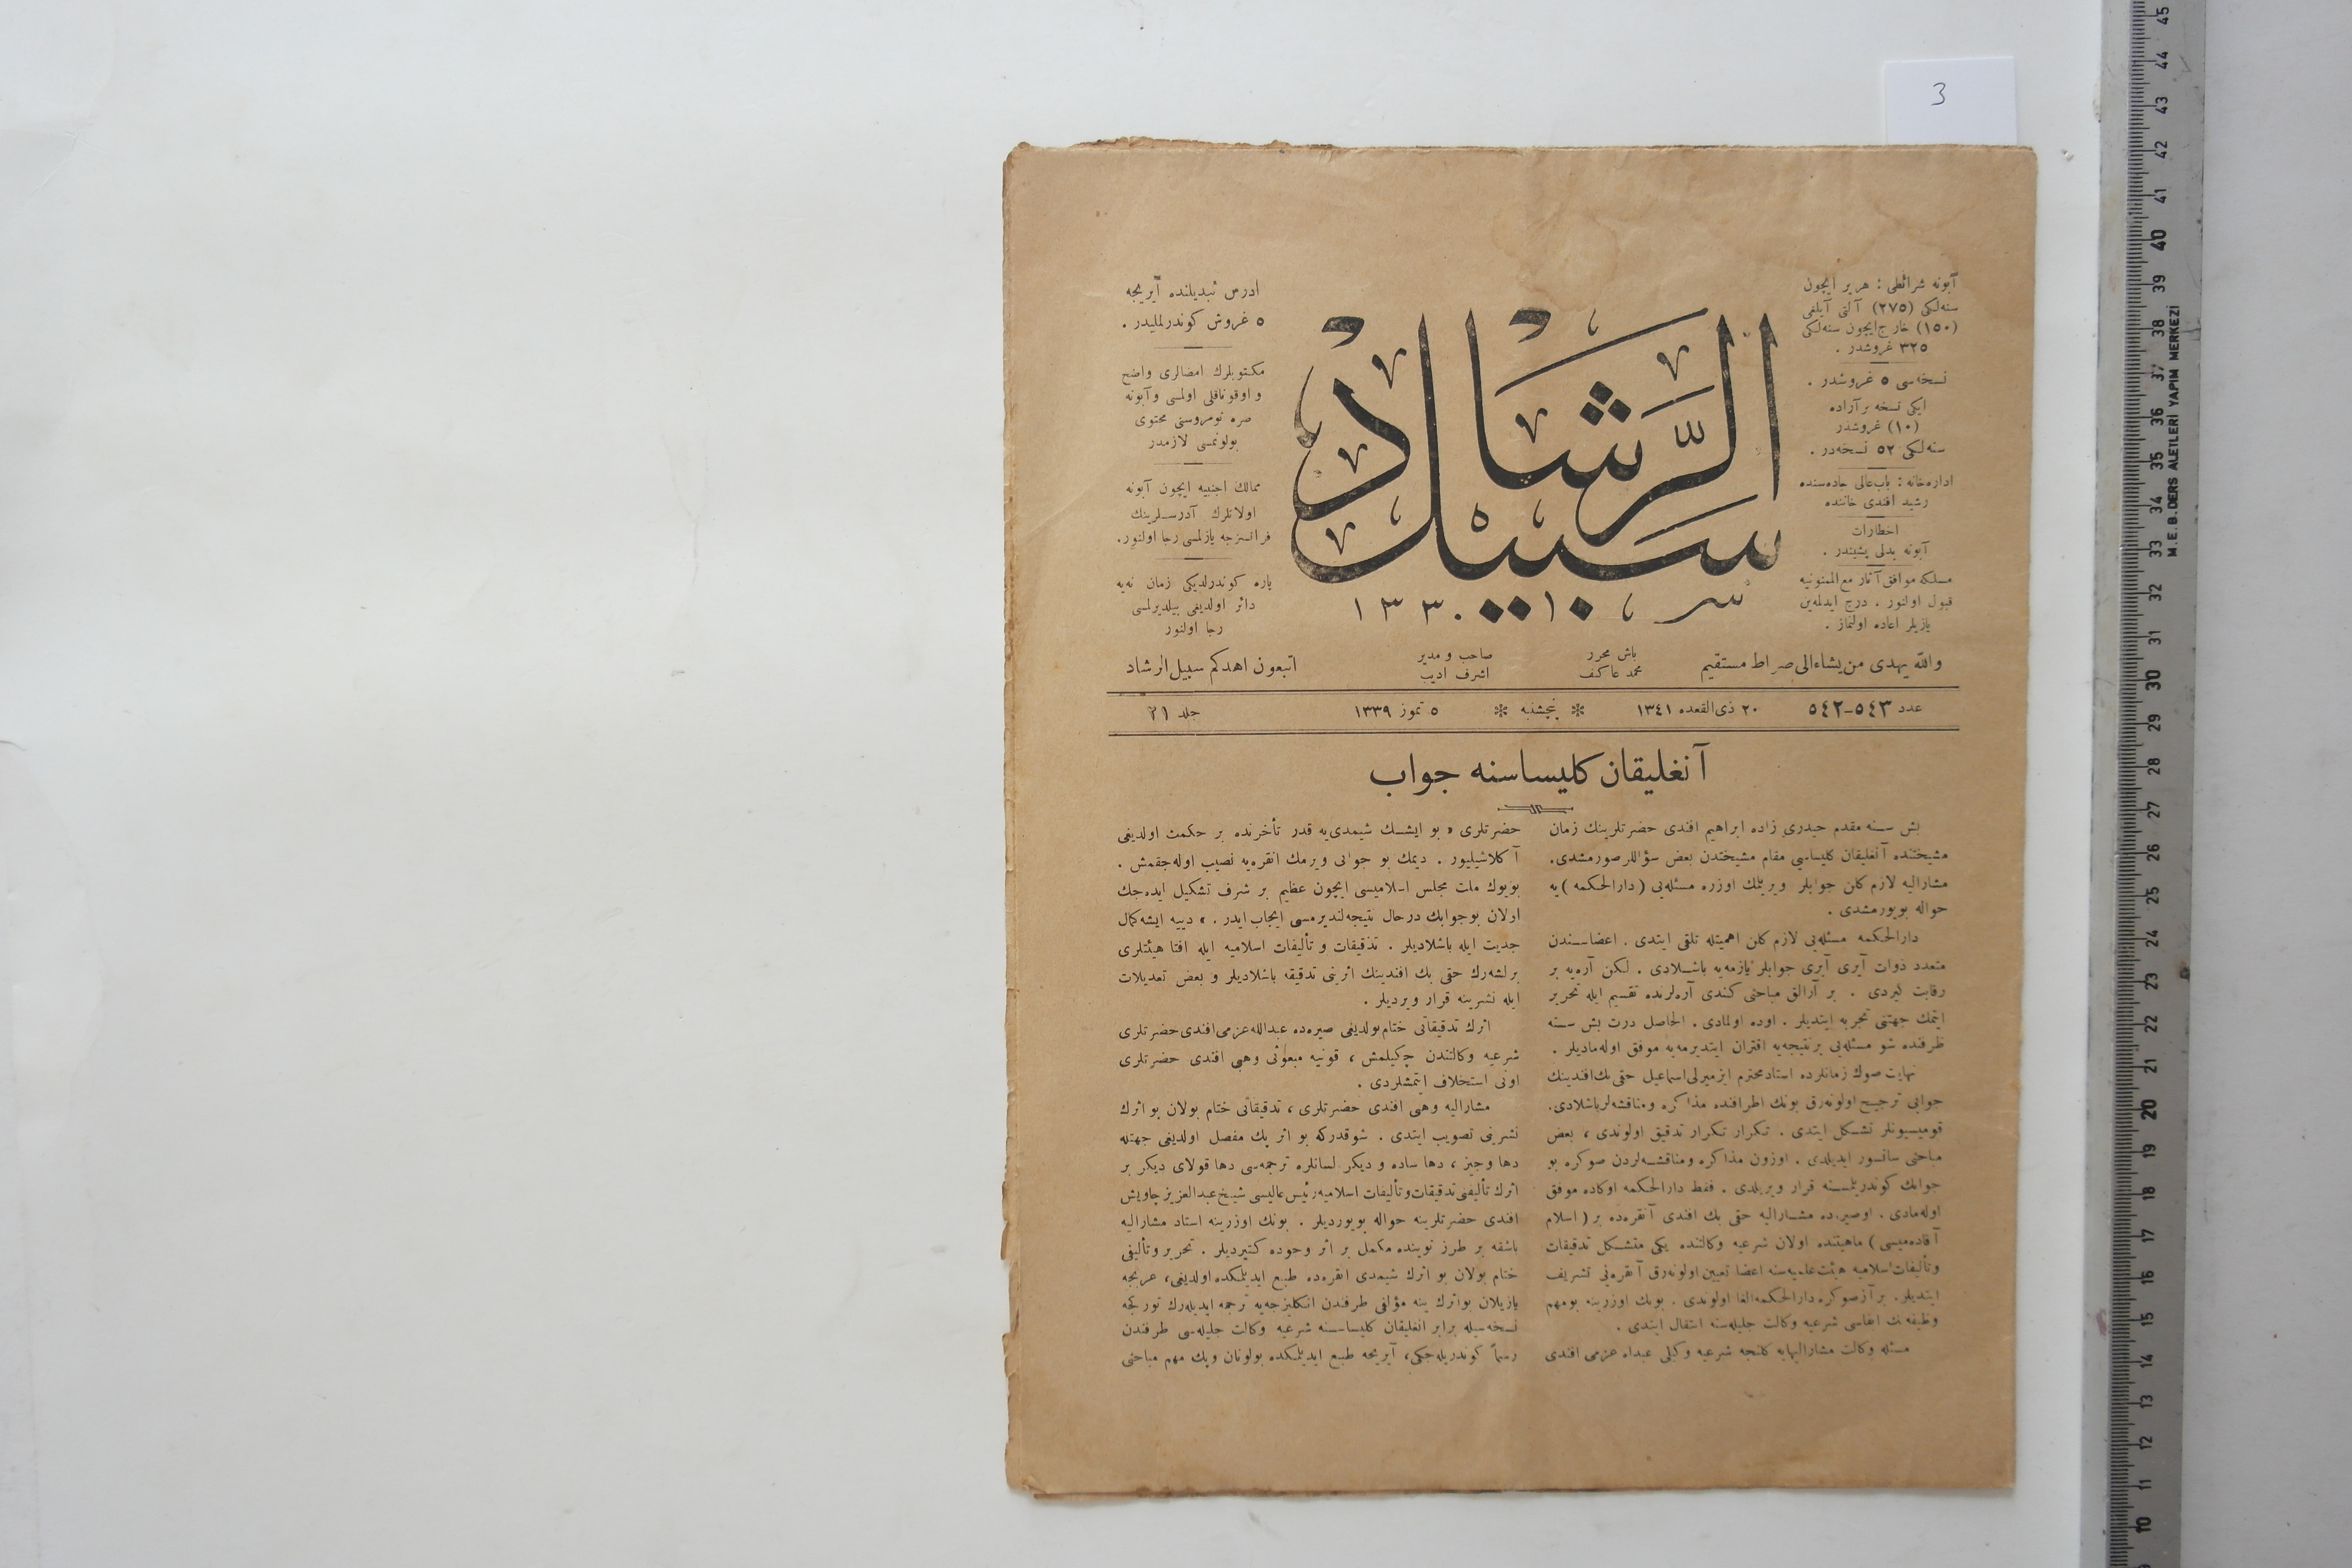 3
آبونه شرائطی : هر یر ایچون
سنه‌لکی (۲۷۵) آلتی آیلغی
(۱۵۰) خارج ایچون سنه‌لکی
۳۲۵ غروشدر .
نسخه‌سی ۵ غروشدر .
ایکی نسخه بر آراده
(۱۰) غروشدر
سنه‌لکی ۵۲ نسخه‌در .
اداره‌خانه : باب‌عالی جاده‌سنده
رشید افندی خاننده
اخطارات
آبونه بدلی پشیندر .
مسلکه موافق آثار مع‌الممنونیه
قبول اولنور . درج ایدلمه‌ین
یازیلر اعاده اولنماز .
سبیل الرشاد
۱۳۳۰
ادرس تبدیلنده آیریجه
۵ غروش کوندرلمليدر .
مکتوبلرك امضالری واضح
و اوقوناقلی اولمسی و آبونه
صره نومروسنی محتوی
بولونمسی لازمدر
ممالك اجنبیه ایچون آبونه
اولانلرك آدرسلرینك
فرانسزجه یازلمسی رجا اولنور.
پاره کوندرلدیکی زمان نه‌یه
دائر اولدیغی بیلدیرلمسی
رجا اولنور
والله یهدی من یشاء الی صراط مستقیم
باش محرر
محمد عاکف
صاحب و مدیر
اشرف ادیب
اتبعون اهدکم سبیل الرشاد
عدد ۵٤۳-۵٤۲ ۲۰ ذی‌القعده ۱۳٤۱ * پنجشنبه * ۵ تموز ۱۳۳۹ جلد ۲۱
آنغلیقان کلیساسنه جواب
بش سنه مقدم حیدری زاده ابراهیم افندی حضرتلرینك زمان
مشیختنده آنغلیقان کلیساسی مقام مشیختدن بعض سؤاللر صورمشدی.
مشارالیه لازم کلن جوابلر ویریلمك اوزره مسئله‌یی (دارالحکمه) یه
حواله بویورمشدی .
دارالحکمه مسئله‌یی لازم کلن اهمیتله تلقی ایتدی . اعضاسندن
متعدد ذوات آیری آیری جوابلر یازمه‌یه باشلادی . لکن آره‌یه بر
رقابت کیردی . بر آرالق مباحثی کندی آره‌لرنده تقسیم ایله تحریر
ایتمك جهتنی تجربه ایتدیلر . اوده اولمادی . الحاصل درت بش سنه
ظرفنده شو مسئله‌یی بر نتیجه‌یه اقتران ایتدیرمه‌یه موفق اوله‌مادیلر .
نهایت صوك زمانلرده استاد محترم ازمیرلی اسماعیل حقی بك افندینك
جوابی ترجیح اولونه‌رق بونك اطرافنده مذاکره و مناقشه‌لر باشلادی.
قومیسیونلر تشکل ایتدی . تکرار تکرار تدقیق اولوندی ، بعض
مباحثی سانسور ایدیلدی . اوزون مذاکره و مناقشه‌لردن صوکره بو
جوابك کوندریلمسنه قرار ویریلدی . فقط دارالحکمه اوکاده موفق
اوله‌مادی . اوصیره‌ده مشارالیه حقی بك افندی آنقره‌ده بر (اسلام
آقاده‌میسی) ماهیتنده اولان شرعیه وکالتنده یکی متشکل تدقیقات
وتألیفات اسلامیه هیئت علمیه‌سنه اعضا تعیین اولونه‌رق آنقره‌یی تشریف
ایتدیلر. بر آز صوکره دارالحکمه الغا اولوندی . بونك اوزرینه بو مهم
وظیفه‌نك ایفاسی شرعیه وکالت جلیله‌سنه انتقال ایتدی .
مسئله وکالت مشارالیهایه کلنجه شرعیه وکیلی عبدالله عزمی افندی
حضرتلری « بو ایشك شیمدی‌یه قدر تأخرنده بر حکمت اولدیغی
آکلاشیلیور . دیمك بو جوابی ویرمك انقره‌یه نصیب اوله‌جقمش .
بویوك ملت مجلس اسلامیسی ایچون عظیم بر شرف تشکیل ایده‌جك
اولان بو جوابك درحال نتیجه‌لندیرمسی ایجاب ایدر . » دییه ایشه کمال
جدیت ایله باشلادیلر . تدقیقات و تألیفات اسلامیه ایله افتا هیئتلری
برلشه‌رك حقی بك افندینك اثرینی تدقیقه باشلادیلر و بعض تعدیلات
ایله نشرینه قرار ویردیلر .
اثرك تدقیقاتی ختام بولدیغی صیره‌ده عبدالله عزمی افندی حضرتلری
شرعیه وکالتندن چکیلمش ، قونیه مبعوثی وهبی افندی حضرتلری
اونی استخلاف ایتمشلردی .
مشارالیه وهبی افندی حضرتلری ، تدقیقاتی ختام بولان بو اثرك
نشرینی تصویب ایتدی . شوقدرکه بو اثر پك مفصل اولدیغی جهتله
دها وجیز ، دها ساده و دیکر لسانلره ترجمه‌سی دها قولای دیکر بر
اثرك تألیفنی تدقیقات و تألیفات اسلامیه رئیس عالیسی شیخ عبدالعزیز چاویش
افندی حضرتلرینه حواله بویوردیلر . بونك اوزرینه استاد مشارالیه
باشقه بر طرز نوینده مکمل بر اثر وجوده کتیردیلر . تحریر و تألیفی
ختام بولان بو اثرك شیمدی انقره‌ده طبع ایدیلمکده اولدیغی، عربجه
یازیلان بو اثرك ینه مؤلفی طرفندن انکلیزجه‌یه ترجمه ایدیله‌رك تورکجه
نسخه‌سیله برابر انغلیقان کلیساسنه شرعیه وکالت جلیله‌سی طرفندن
رسماً کوندریله‌جکی، آیریجه طبع ایدیلمکده بولونان و پك مهم مباحثی
45
44
43
42
41
40
39
38
37
36
35
34
33
32
31
30
29
28
27
26
25
24
23
22
21
20
19
18
17
16
15
14
13
12
11
10
M.E.B.DERS ALETLERİ YAPIM MERKEZİ